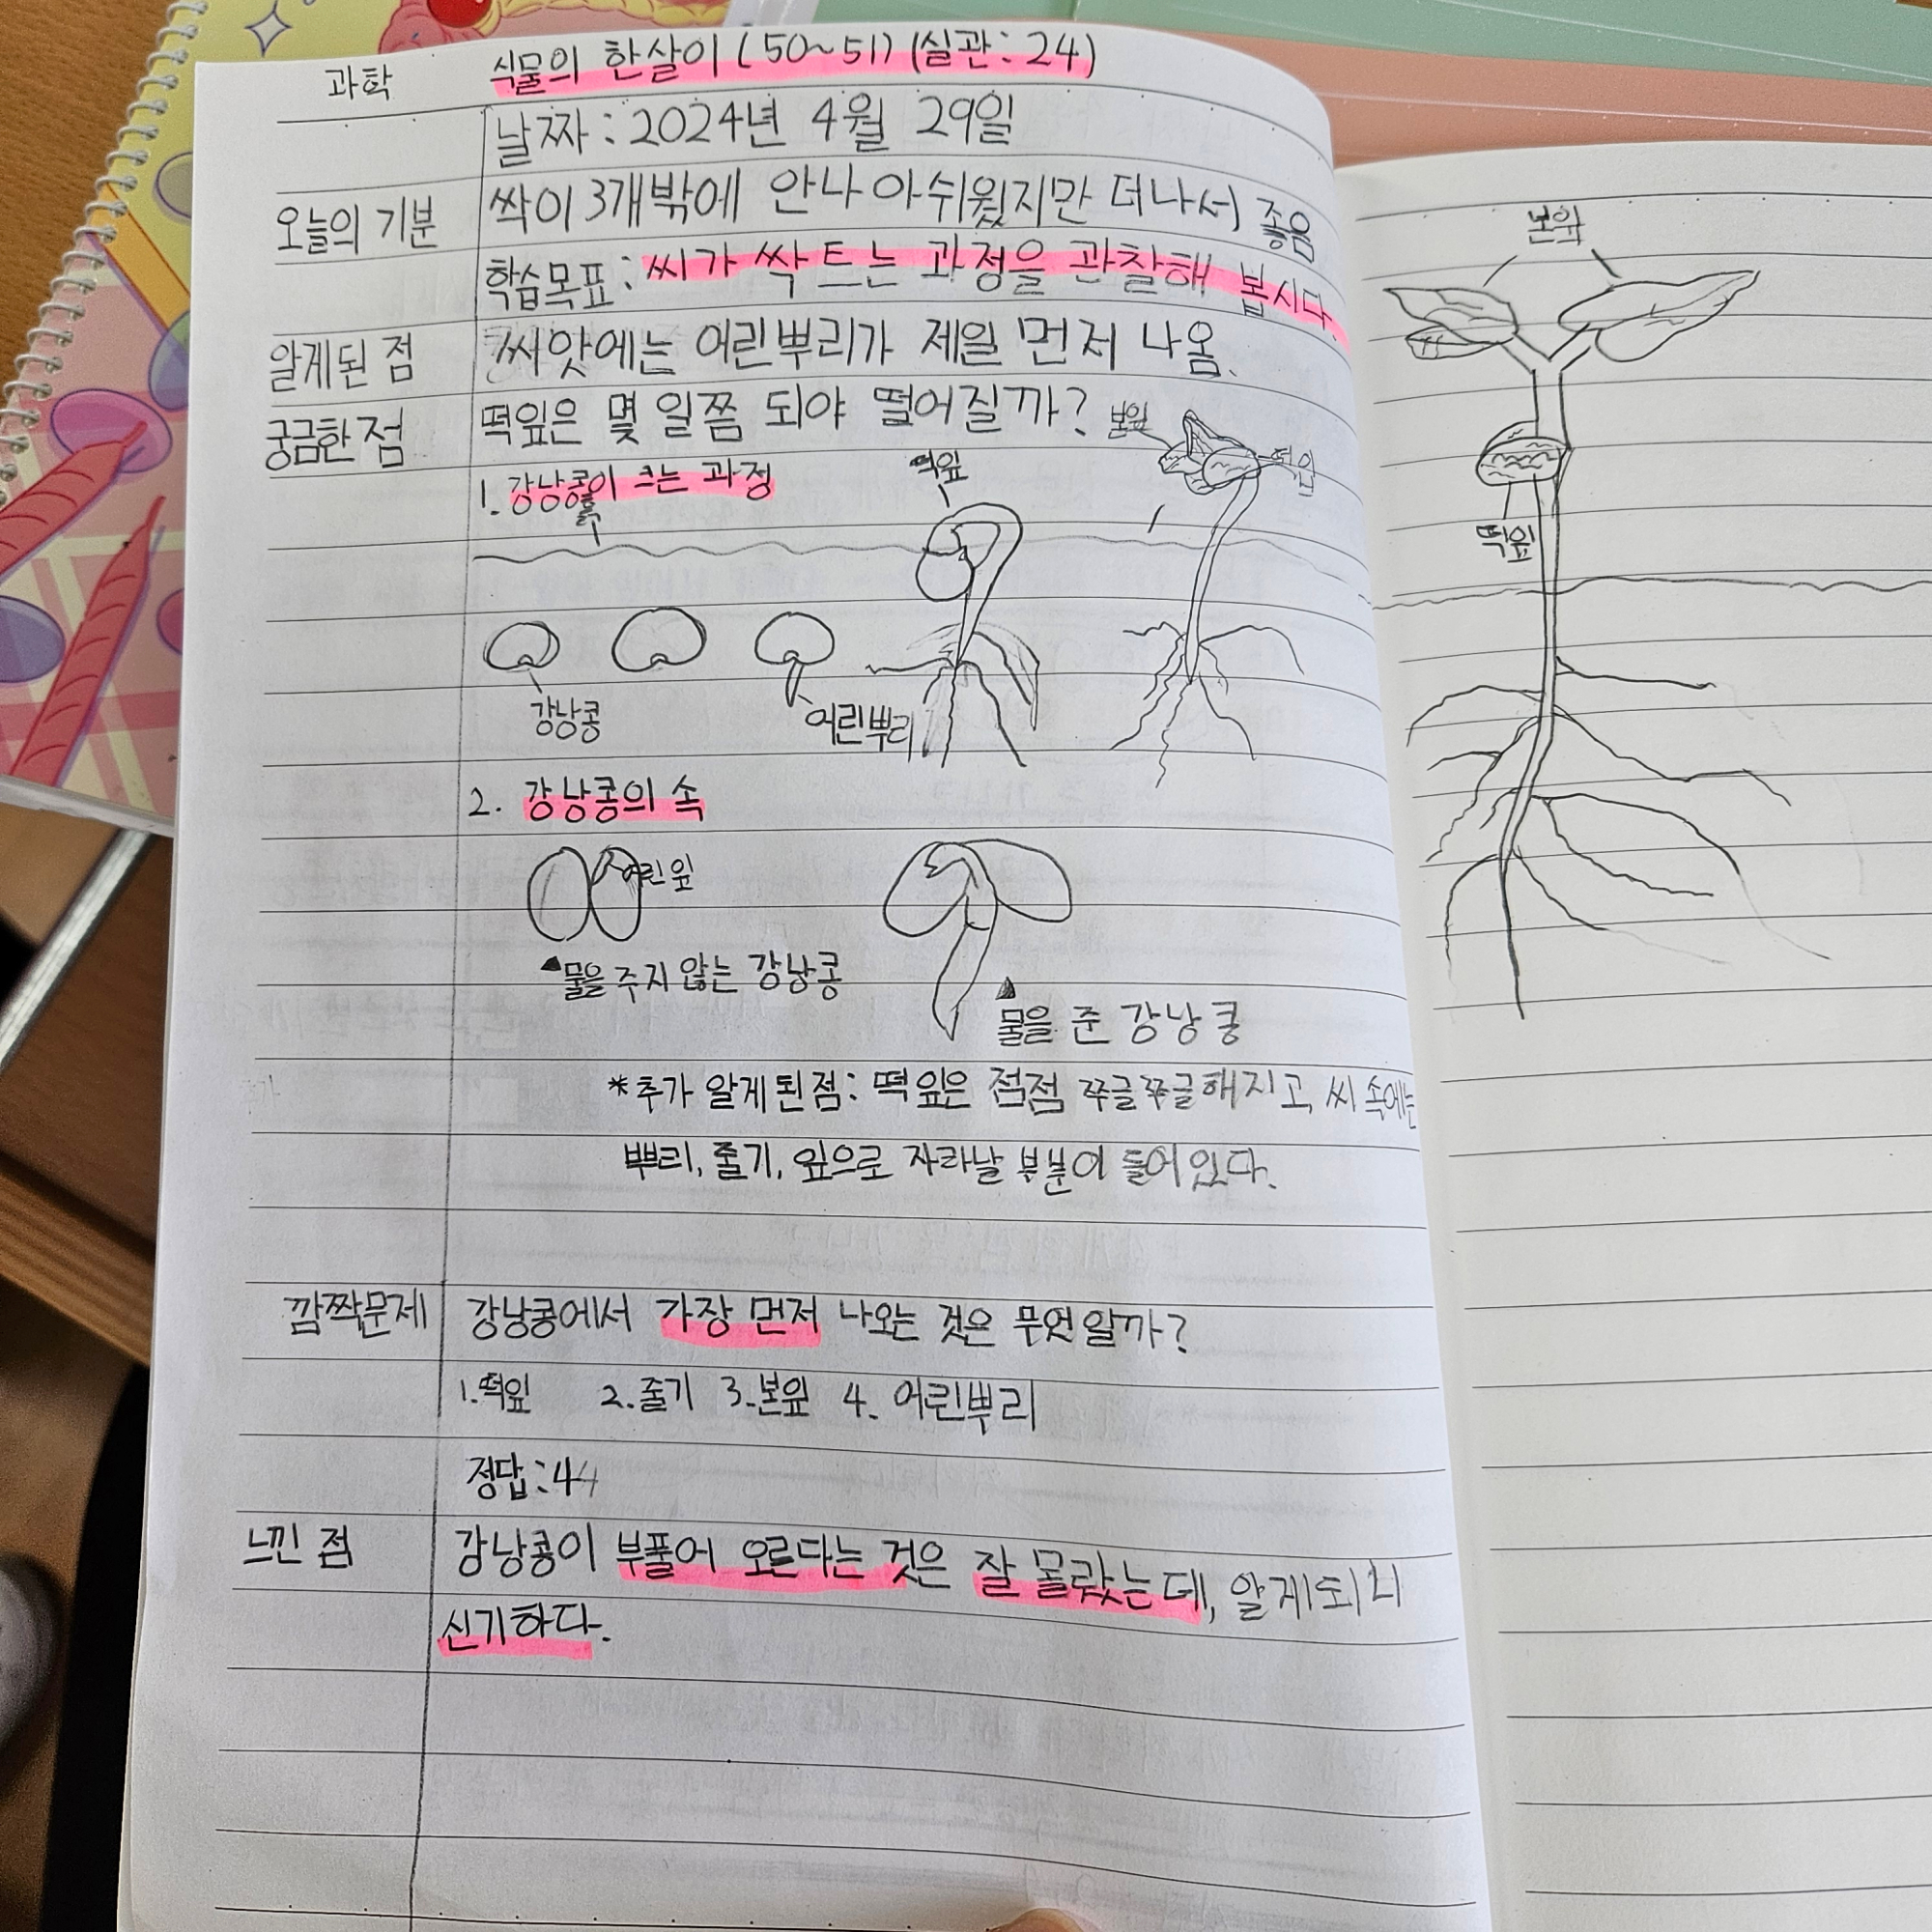 과학 식물의 한살이 (50~51) (실관: 24)
날짜: 2024년 4월 29일
오늘의 기분 싹이 3개밖에 안나 아쉬웠지만 더나서 좋음
학습목표: 씨가 싹 트는 과정을 관찰해 봅시다.
알게된 점 씨앗에는 어린뿌리가 제일 먼저 나옴.
궁금한 점 떡잎은 몇 일쯤 되야 떨어질까?
1. 강낭콩이 크는 과정
흙
떡잎
본잎
떡잎
강낭콩
어린뿌리
2. 강낭콩의 속
어린잎
▲물을 주지 않는 강낭콩
▲물을 준 강낭콩
*추가 알게된점: 떡잎은 점점 쭈글쭈글해지고, 씨 속에는
뿌리, 줄기, 잎으로 자라날 부분이 들어있다.
깜짝문제 강낭콩에서 가장 먼저 나오는 것은 무엇일까?
1.떡잎 2.줄기 3.본잎 4. 어린뿌리
정답:44
느낀 점 강낭콩이 부풀어 오른다는 것은 잘 몰랐는데, 알게되니
신기하다.
본잎
떡잎